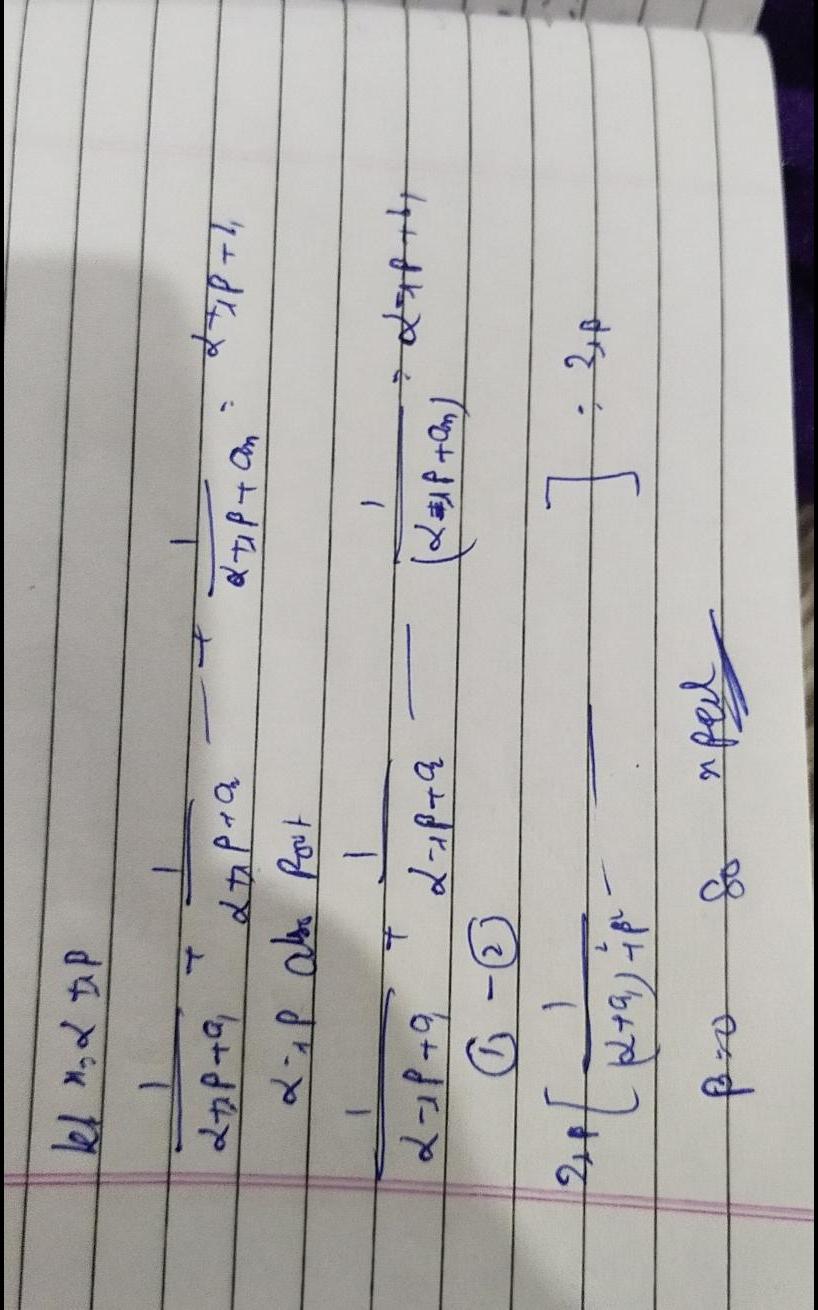 let x = α + iβ
1/(α+iβ+a₁) + 1/(α+iβ+a₂) — + 1/(α+iβ+aₙ) = α+iβ+b₁
α-iβ also root
1/(α-iβ+a₁) + 1/(α-iβ+a₂) — 1/(α-iβ+aₙ) = α-iβ+b₁
① - ②
2iβ [ 1/((α+a₁)²+β²) — ] = 2iβ
β=0 So x real